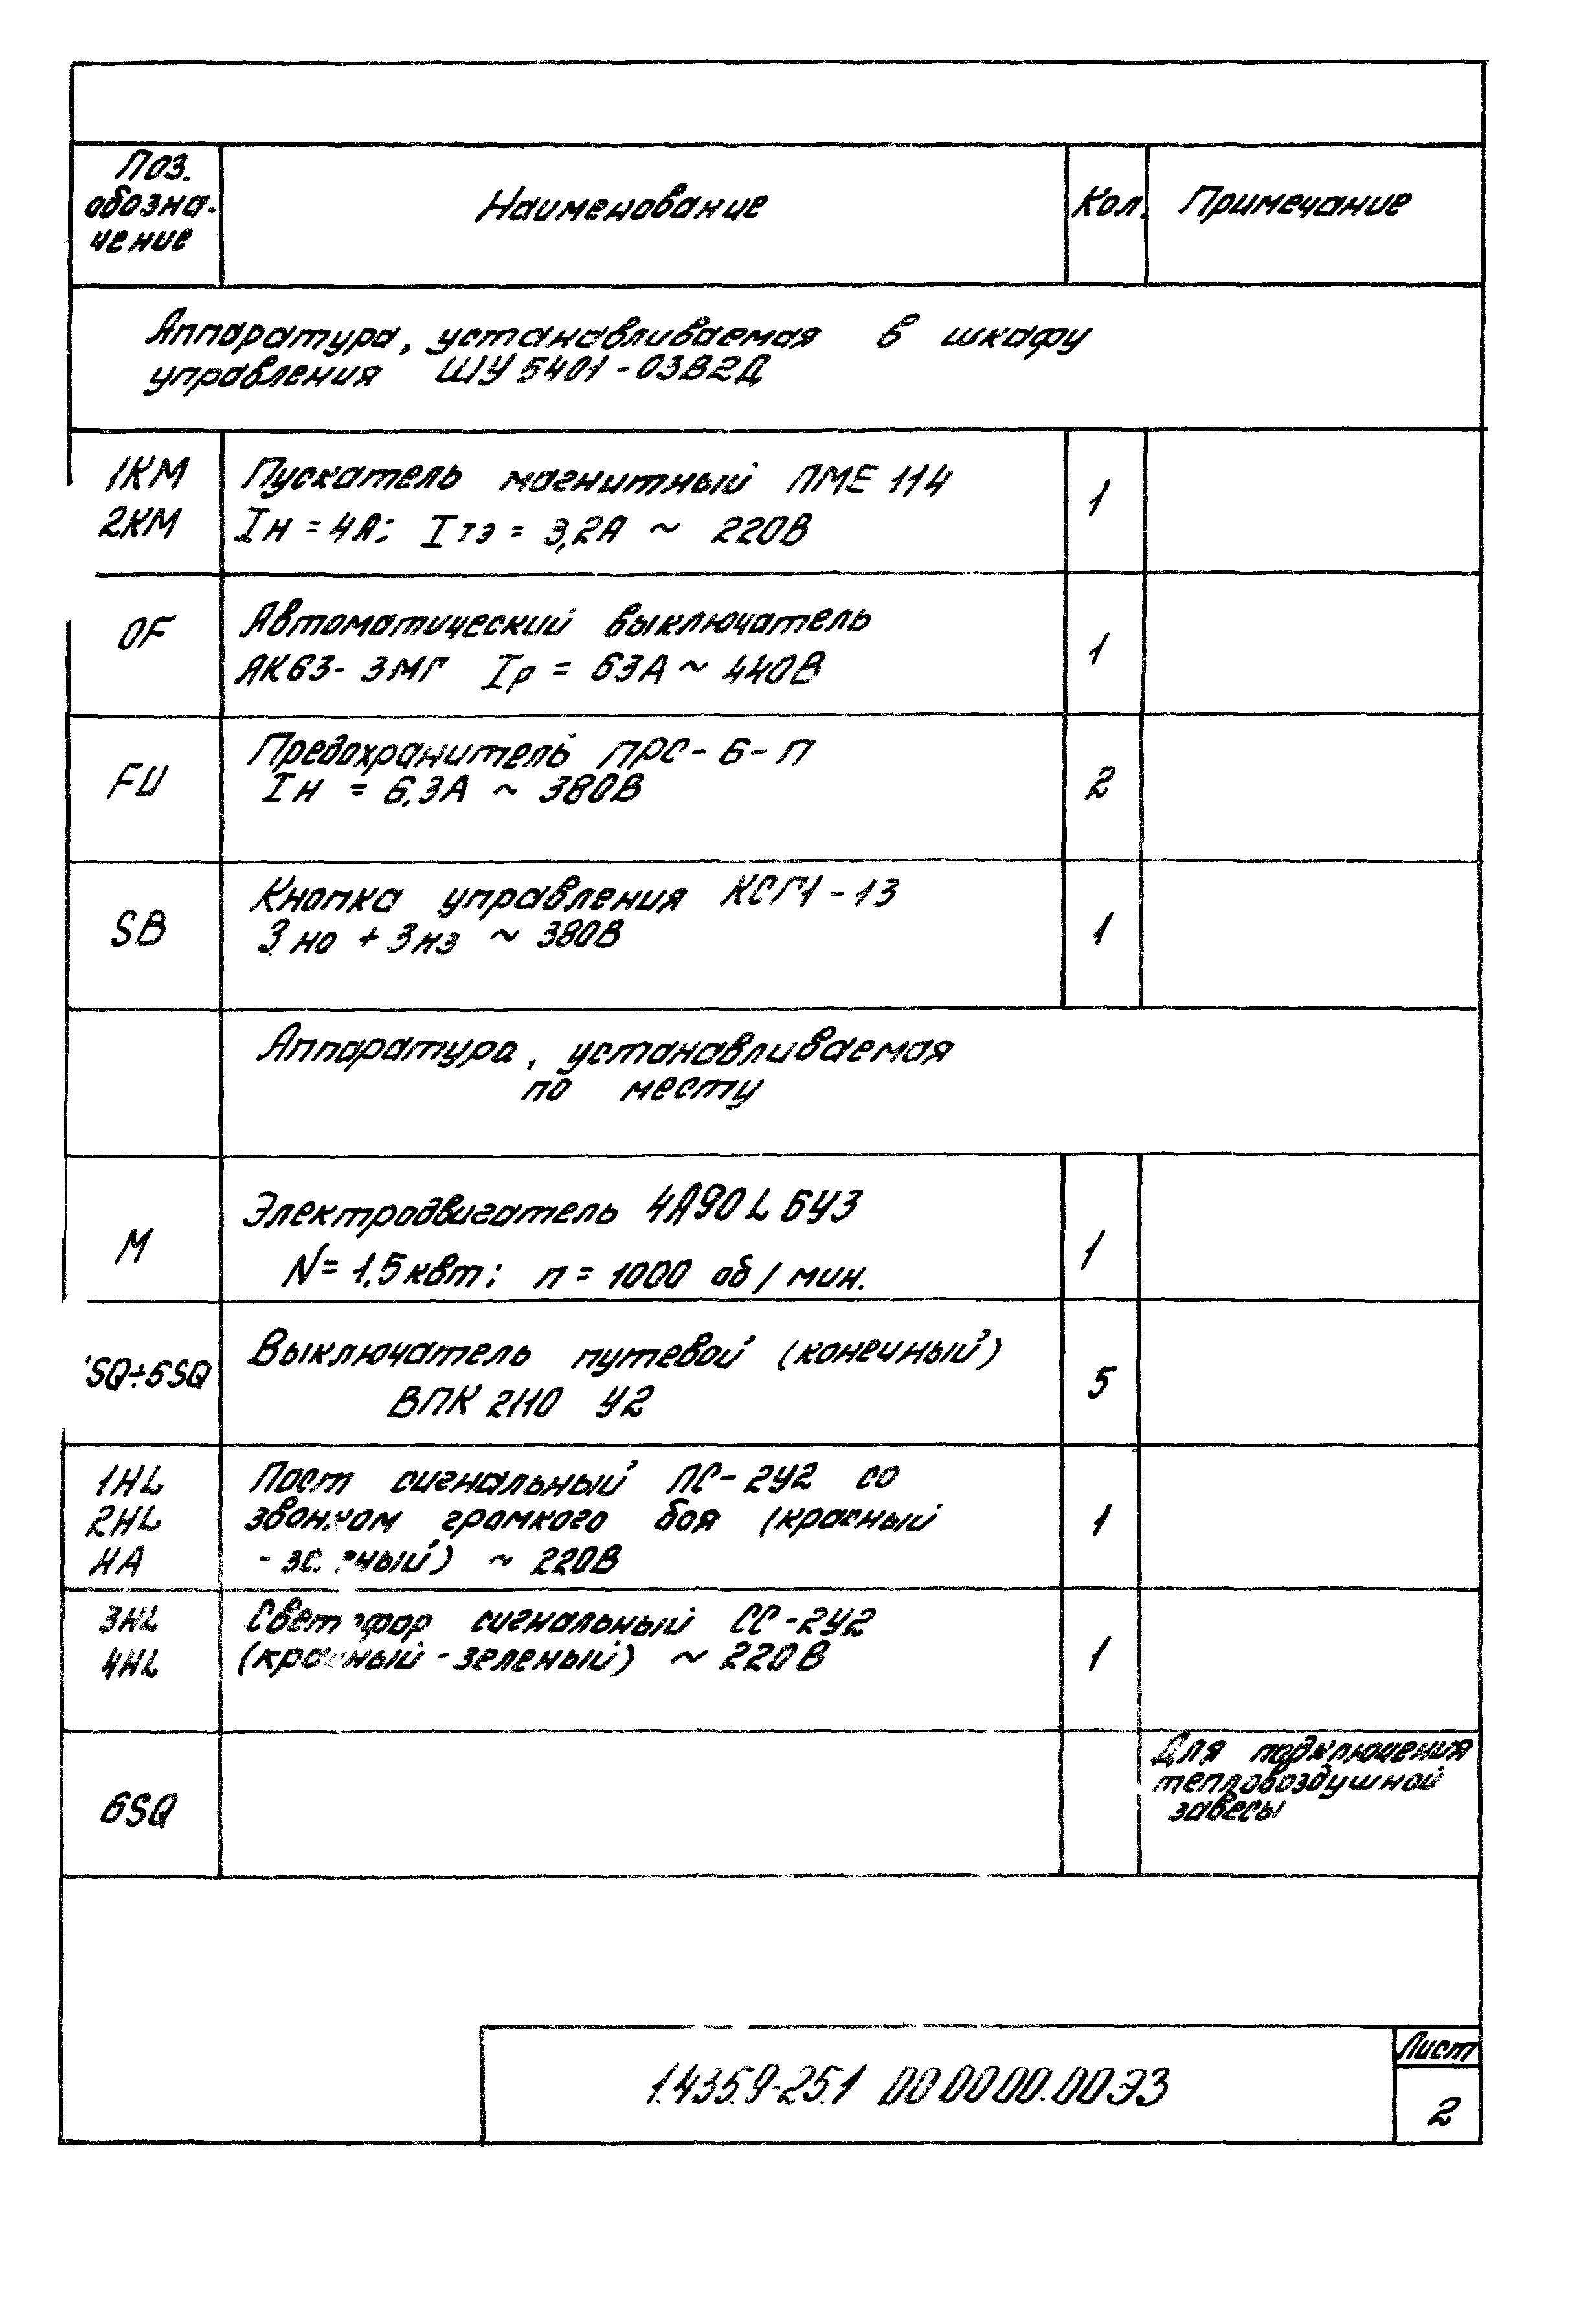 Поз.
обозна-
чение
Наименование
Кол.
Примечание
Аппаратура, устанавливаемая в шкафу
управления ШУ 5401-03В2Д
1КМ
2КМ
Пускатель магнитный ПМЕ 114
Iн = 4А; Iтэ = 3,2А ~ 220В
1
QF
Автоматический выключатель
АК63-3МГ Iр = 63А ~ 440В
1
FU
Предохранитель ПРС-6-П
Iн = 6,3А ~ 380В
2
SB
Кнопка управления КСГ1-13
3но + 3нз ~ 380В
1
Аппаратура, устанавливаемая
по месту
М
Электродвигатель 4А90L6У3
N = 1,5квт; п = 1000 об/мин.
1
SQ÷5SQ
Выключатель путевой (конечный)
ВПК 2110 У2
5
1HL
2HL
НА
Пост сигнальный ПС-2У2 со
звонком громкого боя (красный
-зеленый) ~ 220В
1
3HL
4HL
Светофор сигнальный СС-2У2
(красный-зеленый) ~ 220В
1
6SQ
Для подключения
тепловоздушной
завесы
1.435.9-25.1 00.00.00.00Э3
Лист
2